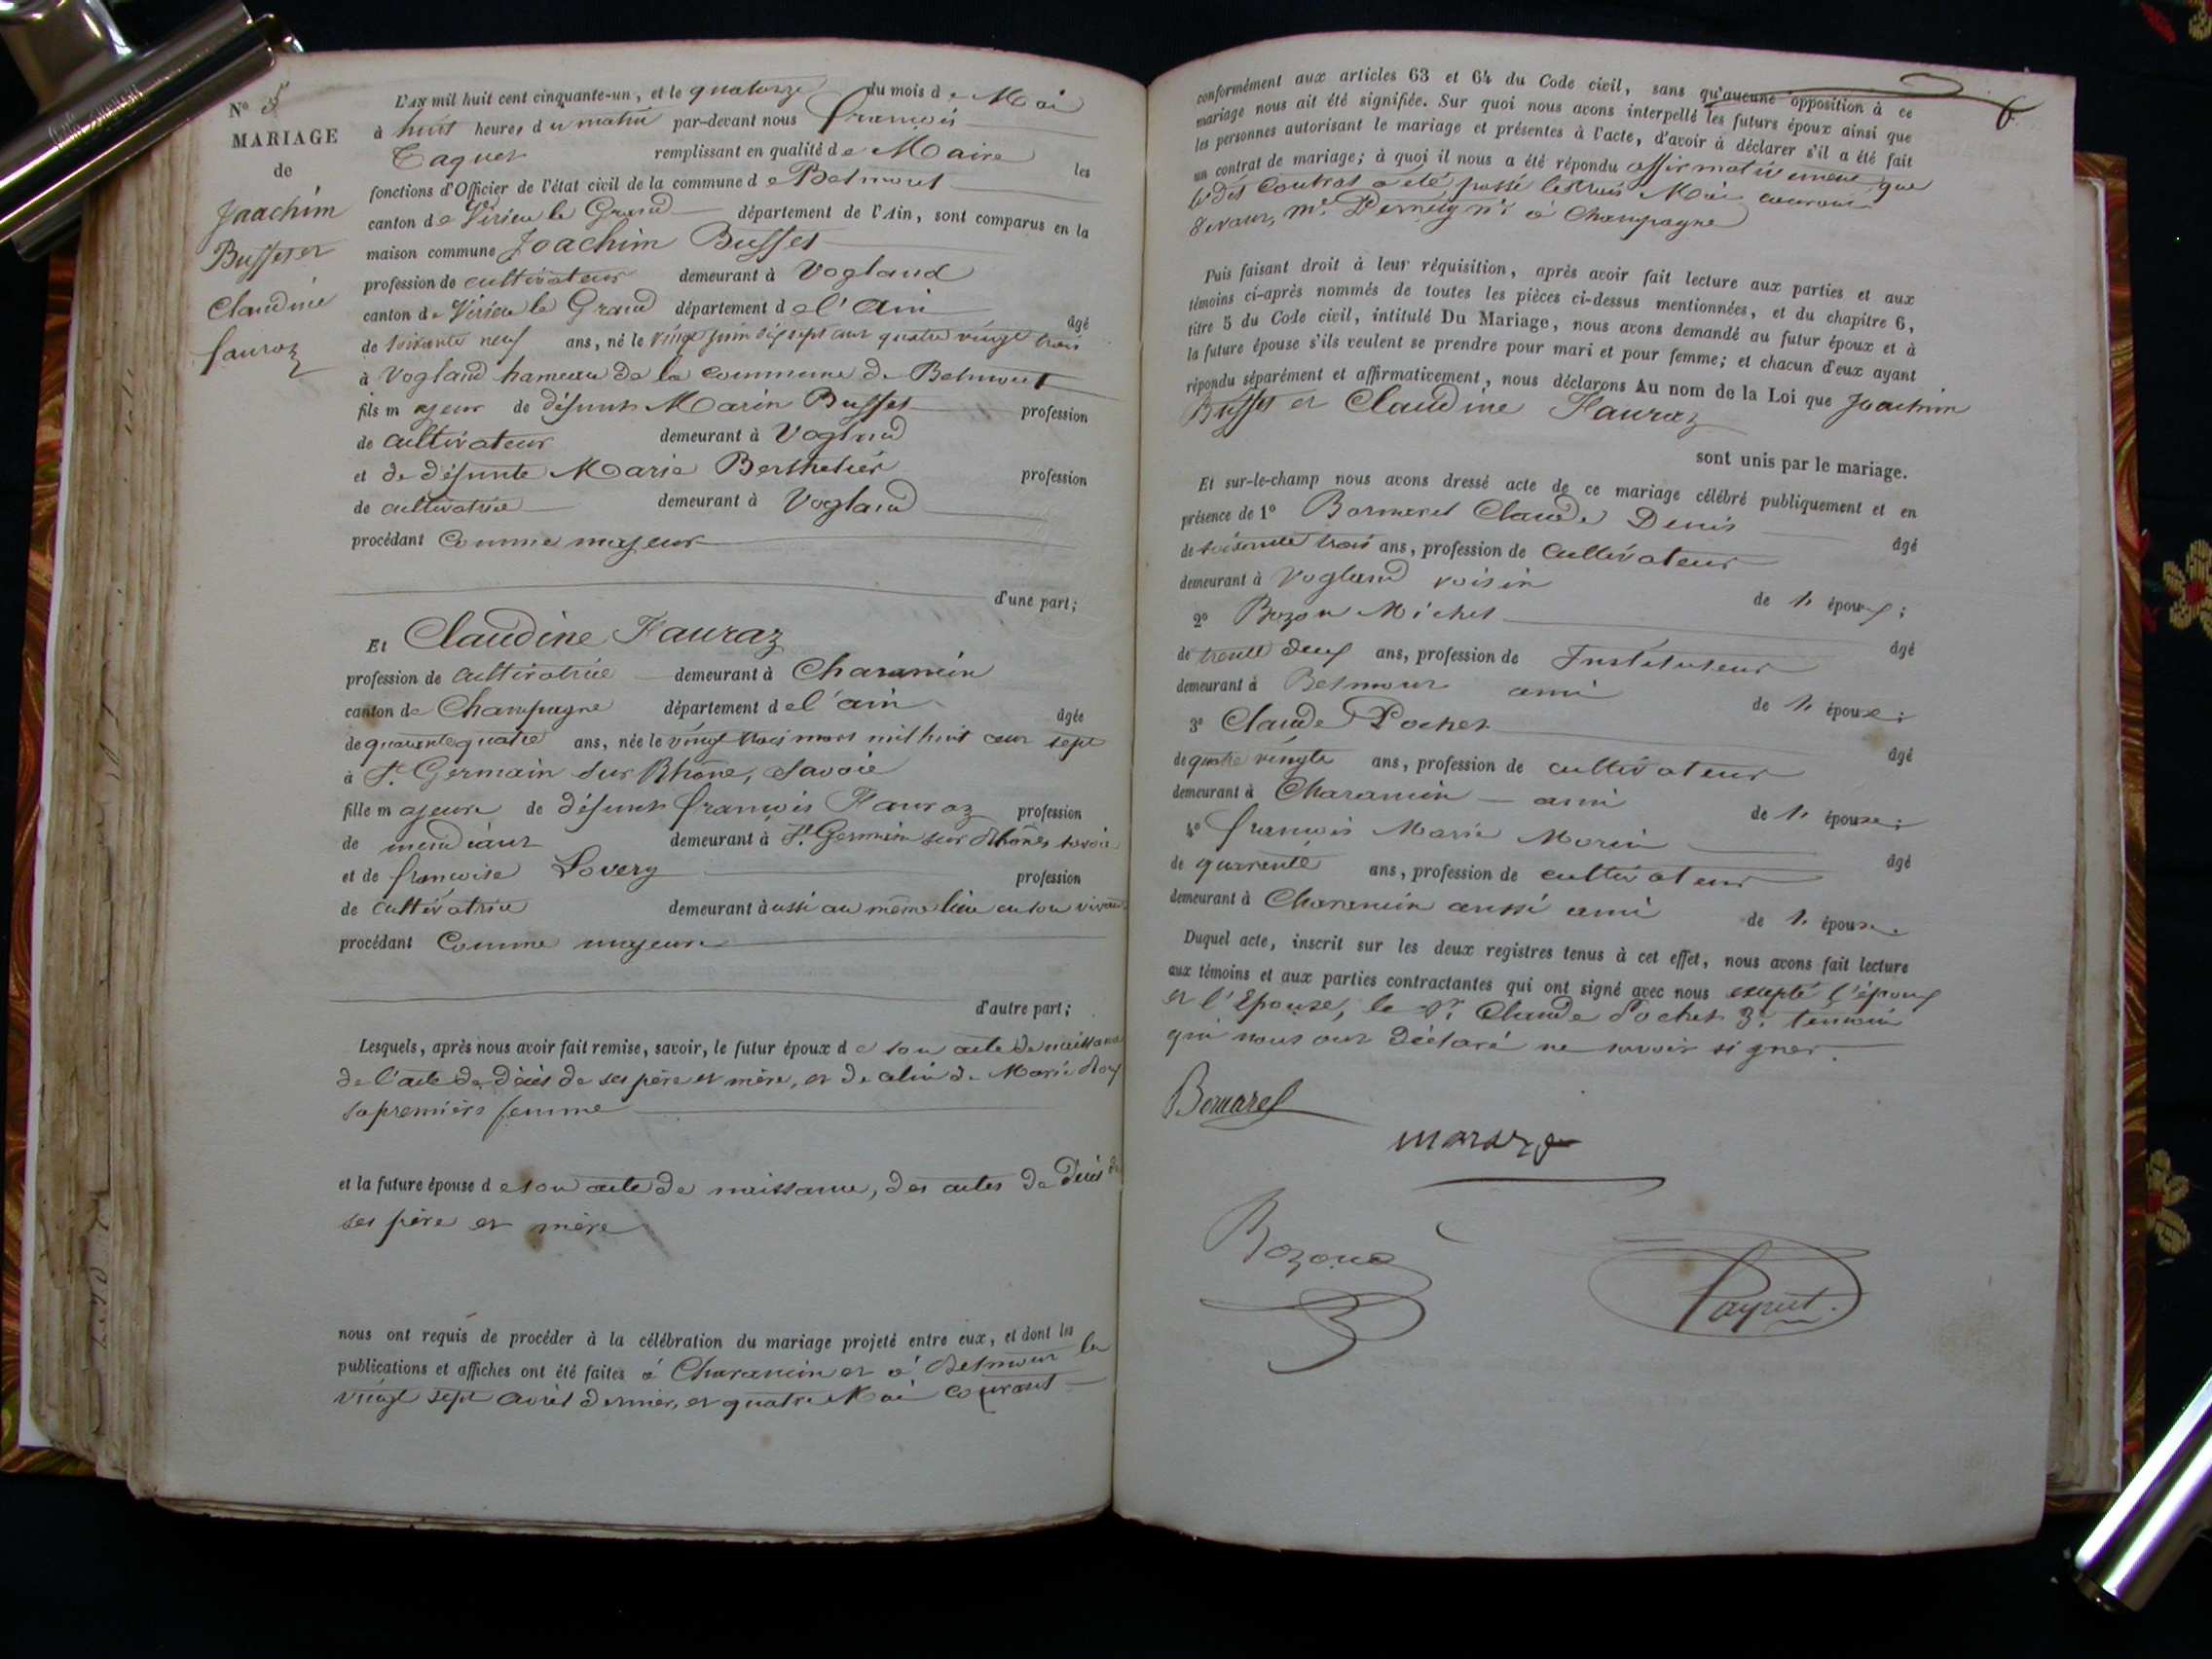 N° 5
MARIAGE
de
Joachim
Busset et
Claudine
fauraz
L'AN mil huit cent cinquante-un, et le quatorze du mois de Mai
à huit heures du matin par-devant nous françois
remplissant en qualité de Maire les
fonctions d'Officier de l'état civil de la commune de Belmont
canton de Virieu le Grand département de l'Ain, sont comparus en la
maison commune Joachim Busset
profession de cultivateur demeurant à Vogland
canton de Virieu le Grand département de l'Ain âgé
de soixante neuf ans, né le vingt juin dix sept cent quatre vingt trois
à Vogland hameau de la commune de Belmont
fils majeur de défunt Marin Busset profession
de cultivateur demeurant à Vogland
et de défunte Marie Berthelier profession
de cultivatrice demeurant à Vogland
procédant Comme majeur
d'une part;
Et Claudine Fauraz
profession de cultivatrice demeurant à Charancin
canton de Champagne département de l'ain âgée
de quarante quatre ans, née le vingt trois mars mil huit cent sept
à St. Germain sur Rhône, Savoie
fille majeure de défunt françois Fauraz profession
de mendiant demeurant à St. Germain sur Rhône, savoie
et de françoise Lovery profession
de cultivatrice demeurant aussi au même lieu en son vivant
procédant Comme majeure
d'autre part;
Lesquels, après nous avoir fait remise, savoir, le futur époux de son acte de naissance
de l'acte de décès de ses père et mère, et de celui de Marie Roy
sa première femme
et la future épouse de son acte de naissance, des actes de Décès de
ses père et mère
nous ont requis de procéder à la célébration du mariage projeté entre eux, et dont les
publications et affiches ont été faites à Charancin et à Belmont les
vingt sept avril dernier, et quatre Mai courant
conformément aux articles 63 et 64 du Code civil, sans qu'aucune opposition à ce
mariage nous ait été signifiée. Sur quoi nous avons interpellé les futurs époux ainsi que
les personnes autorisant le mariage et présentes à l'acte, d'avoir à déclarer s'il a été fait
un contrat de mariage; à quoi il nous a été répondu affirmativement que
le dit Contrat a été passé le trois Mai courant
devant, Me. nre à Champagne
Puis faisant droit à leur réquisition, après avoir fait lecture aux parties et aux
témoins ci-après nommés de toutes les pièces ci-dessus mentionnées, et du chapitre 6,
titre 5 du Code civil, intitulé Du Mariage, nous avons demandé au futur époux et à
la future épouse s'ils veulent se prendre pour mari et pour femme; et chacun d'eux ayant
répondu séparément et affirmativement, nous déclarons Au nom de la Loi que Joachim
Busset et Claudine Fauraz
sont unis par le mariage.
Et sur-le-champ nous avons dressé acte de ce mariage célébré publiquement et en
présence de 1° Claude Denis âgé
de soixante trois ans, profession de Cultivateur
demeurant à Vogland voisin de l'époux;
2° Bozon Michel âgé
de trente deux ans, profession de Instituteur
demeurant à Belmont ami de l'épouse;
3° Claude Pochet âgé
de quatre vingts ans, profession de cultivateur
demeurant à Charancin ami de l'épouse;
4° françois Marie Morin âgé
de quarante ans, profession de cultivateur
demeurant à Charancin aussi ami de l'épouse.
Duquel acte, inscrit sur les deux registres tenus à cet effet, nous avons fait lecture
aux témoins et aux parties contractantes qui ont signé avec nous excepté l'époux
et l'Epouse, le Sr. Claude Pochet 3e. témoin
qui nous ont déclaré ne savoir signer.